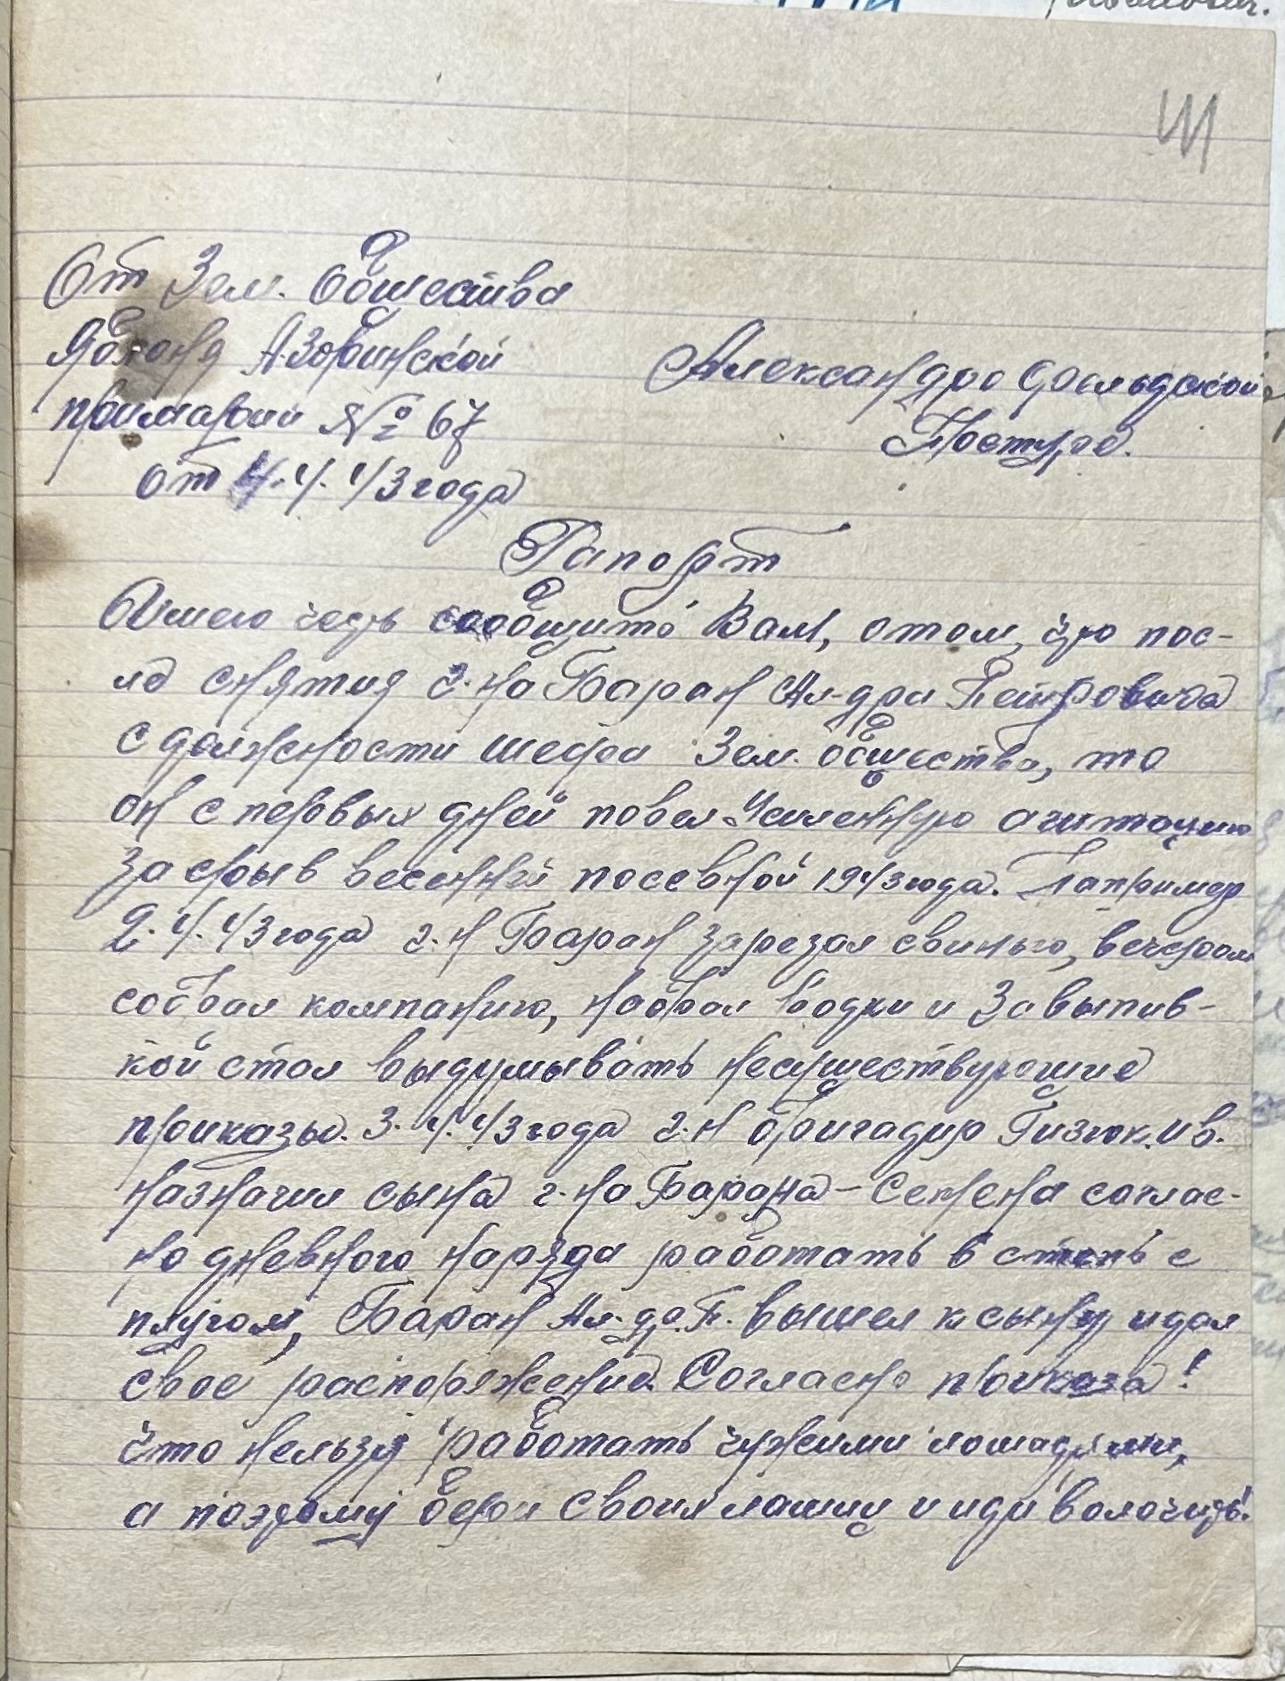 От Зем. Общества
Яблоня Азовинской
примарии № 67
от 4. 4. 43 года
Александро фельдской
Постур.
Рапорт
Имею честь сообщить Вам, о том, что пос-
ле снятия г-на Баран Ал-дра Петровича
с должности шефа Зем. общества, то
он с первых дней повел Усиленную агитацию
за срыв весенней посевной 1943 года. Например
2. 4. 43 года г-н Баран зарезал свинью, вечером
собрал компанию, набрал водки и За выпив-
кой стал выдумывать несуществующие
приказы. 3. 4. 43 года г-н бригадир Гизюк. Ив.
назначил сына г-на Барана – Семена соглас-
но дневного наряда работать в степь с
плугом, Баран Ал-др. П. вышел к сыну и дал
свое распоряжение Согласно приказа!
что нельзя работать чужими лошадями,
а поэтому бери свои лошии и иди волочить!